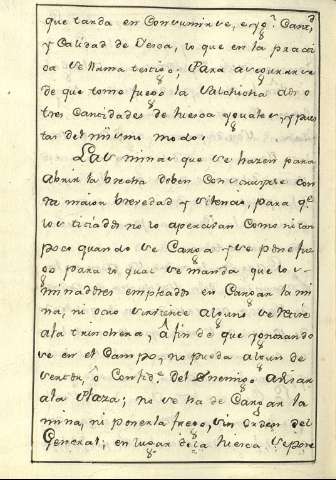 que tarda en Consumirse, e yg.l Cant.d
y Calidad de Yesca, lo que en la practi
ca se llama testigo; Para asegurarse
de que tome fuego la Salchicha a dos o
tres Cantidades de Yesca yguales, y pues
tas del mismo modo.
Las minas que se hazen para
Abrir la brecha deben Construirse con
la maior brevedad y silencio, para q.e
los sitiados no lo aperciban Como ni tam
poco quando se Carga y se pone fue
go para lo qual se manda que los
minadores empleados en Cargar la mi
na, ni otro sirviente alguno se retire
a la trinchera, A fin de que ygnorando
se en el Campo, no pueda algun de
sertor, o Confid.e del Enemigo avisar
a la Plaza; no se ha de Cargar la
mina, ni ponerla fuego, sin orden del
General; en lugar de la Yesca se pone